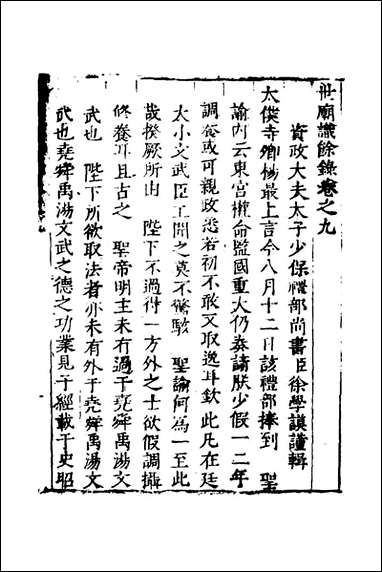 世廟識餘錄卷之九
資政大夫太子少保禮部尚書臣徐學謨謹輯
太僕寺卿楊最上言今八月十二日該禮部捧到 聖
諭内云東宮權命監國重大仍奏請朕少假一二年
調養或可親政悉若初不敢又取逸耳欽 此凡在廷
大小文武臣工聞之莫不驚駭 聖諭何爲一至此
哉揆厥所由 陛下不過得一方外之士欲假調攝
修養耳且古之 聖帝明主未有過于堯舜禹湯文
武也 陛下所欲取法者亦未有外于堯舜禹湯文
武也堯舜禹湯文武之德之功業見于經載于史昭